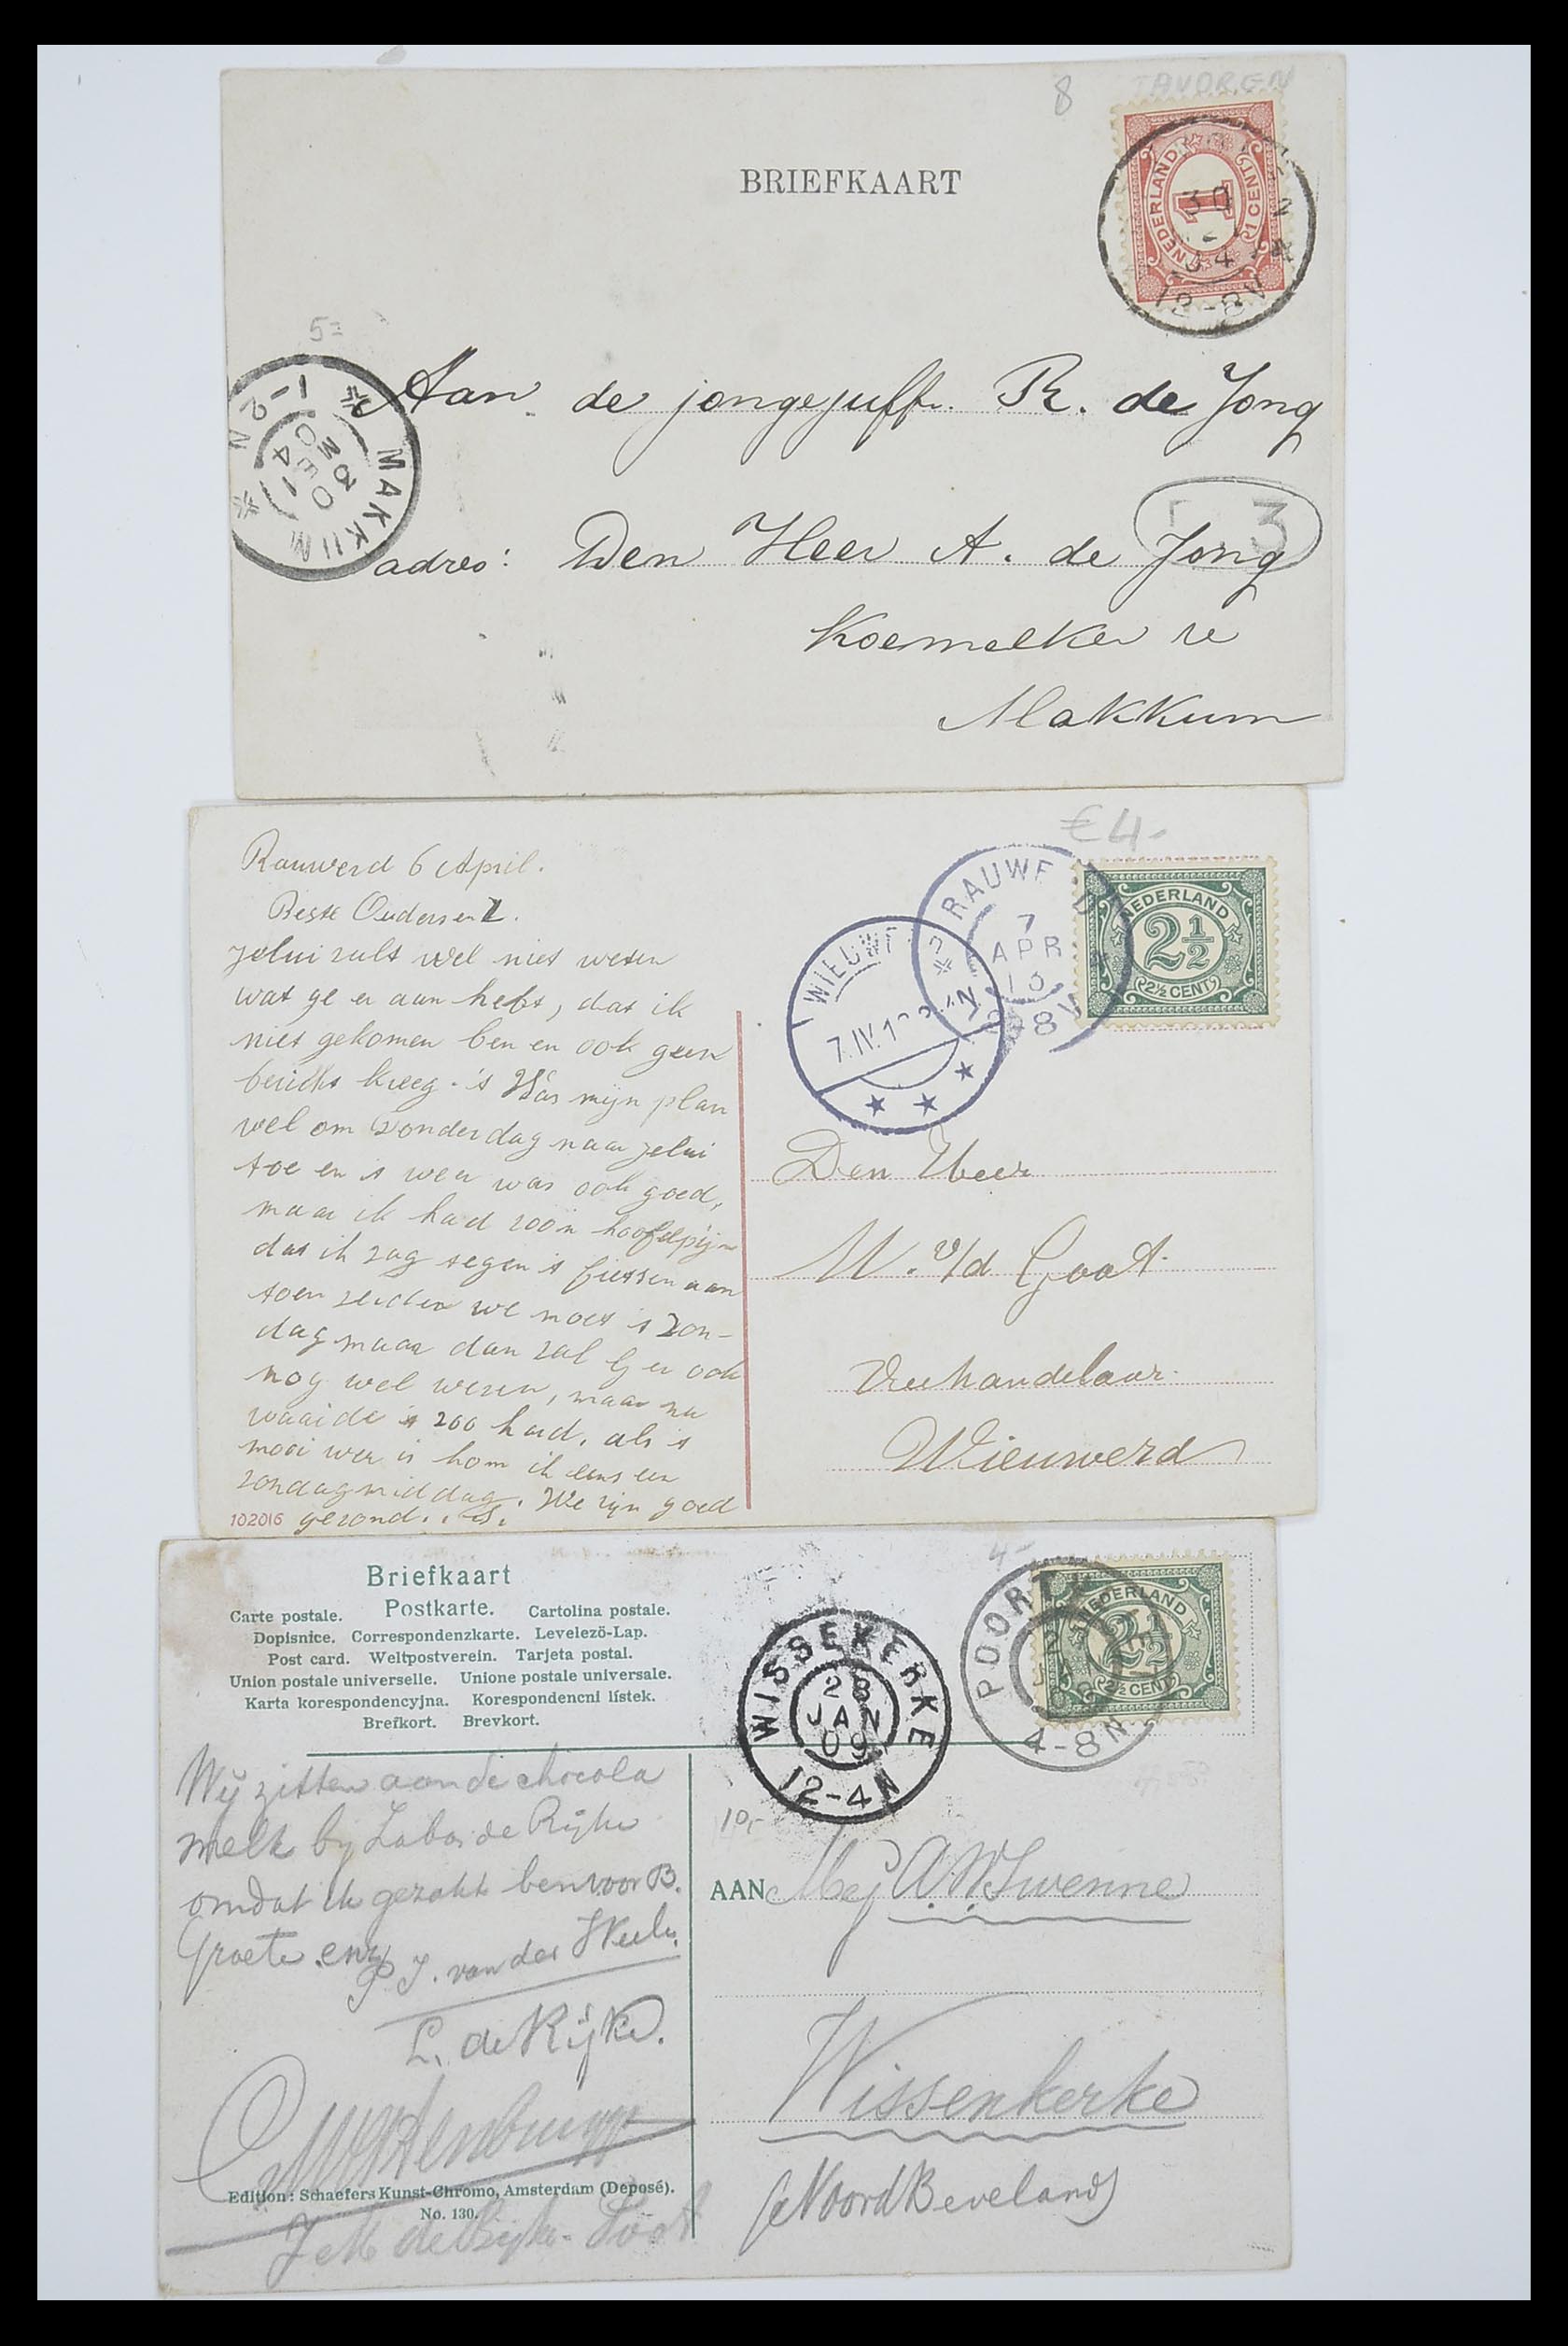 8 TAVOREN
BRIEFKAART
NEDERLAND
1
1 CENT
30
04
12-8V
5=
MAKKUM
30 DEC 04
1-2N
Aan de jongejuffr. R. de Jong
3
adres: Den Heer A. de Jong
Koemelker te
Makkum
€4-
Rauwerd 6 April.
Beste Ouders en Z.
jelui zult wel niet weten
wat ge er aan hebt, dat ik
niet gekomen ben en ook geen
bericht kreeg. 't Was mijn plan
wel om Zonderdag naar jelui
toe en 't weer was ook goed,
maar ik had zoo'n hoofdpijn
dat ik zag tegen 't fietsen aan
toen zeiden we noet 't Zon-
dag maar dan zal ij er ook
nog wel wezen, maar nu
waaide 't zoo hard, als 't
mooi weer is kom ik eens een
zondagmiddag. We zijn goed
gezond.
102016
RAUWERD
7
APR
12-8V
WIEUWE
7.IV.1
NEDERLAND
2½
2½ CENT
Den Heer
W. v/d Goot
Veehandelaar
Wieuwerd
4-
Briefkaart
Carte postale. Postkarte. Cartolina postale.
Dopisnice. Correspondenzkarte. Levelező-Lap.
Post card. Weltpostverein. Tarjeta postal.
Union postale universelle. Unione postale universale.
Karta korespondencyjna. Korespondencni lístek.
Brefkort. Brevkort.
WISSEKERKE
28
JAN
09
12-4N
POORT
4-8N
NEDERLAND
2½
2½ CENT
10,-
Wij zitten aan de chocola
melk bij Labas de Rijke
omdat ik gezakt ben voor B.
Groete enz
P J. van der Weele
L. de Rijke.
AAN Mej A. W Swenne
Wissenkerke
(Noord Beveland)
Edition: Schaefers Kunst-Chromo, Amsterdam (Deposé).
No. 130.